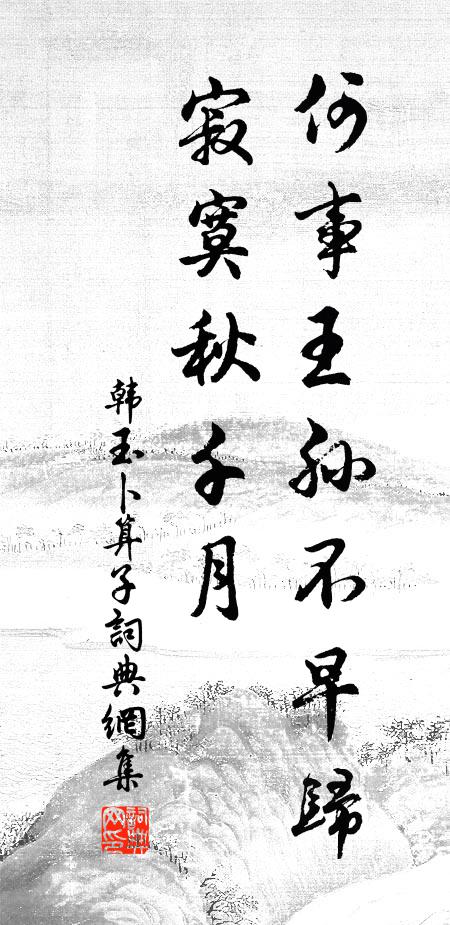 何事王孙不早歸
寂寞秋千月
韩玉卜算子詞典網集